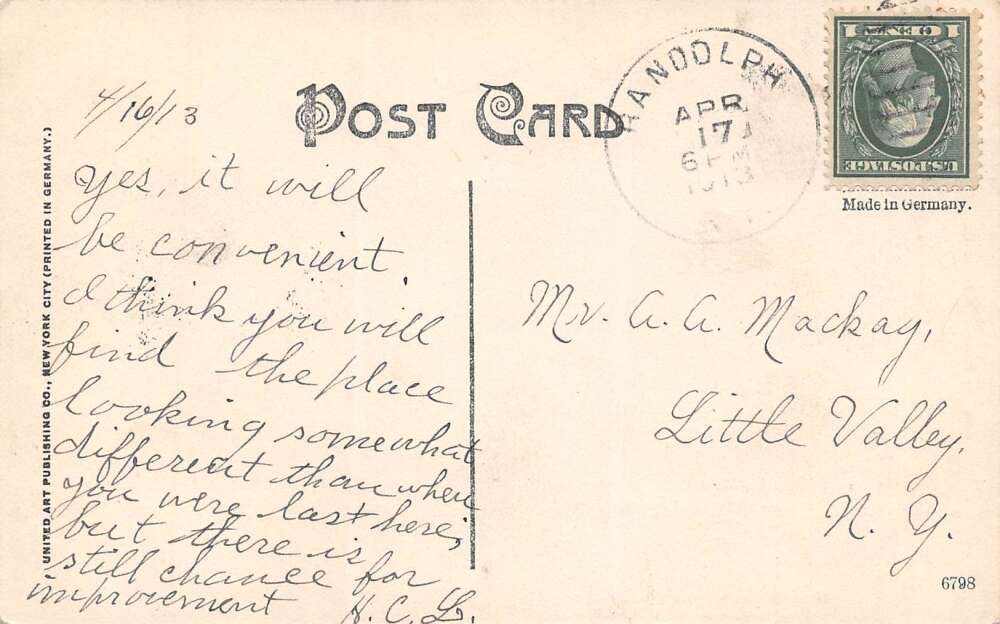 4/16/13
POST CARD
RANDOLPH
APR
17
6 PM
1913
1 CENT 1
U.S. POSTAGE
Made in Germany.
Yes, it will
be convenient.
I think you will
find the place
looking somewhat
different than when
you were last here;
but there is
still chance for
improvement
H. C. L.
Mr. A. A. Mackay,
Little Valley,
N. Y.
UNITED ART PUBLISHING CO., NEW YORK CITY (PRINTED IN GERMANY.)
6798